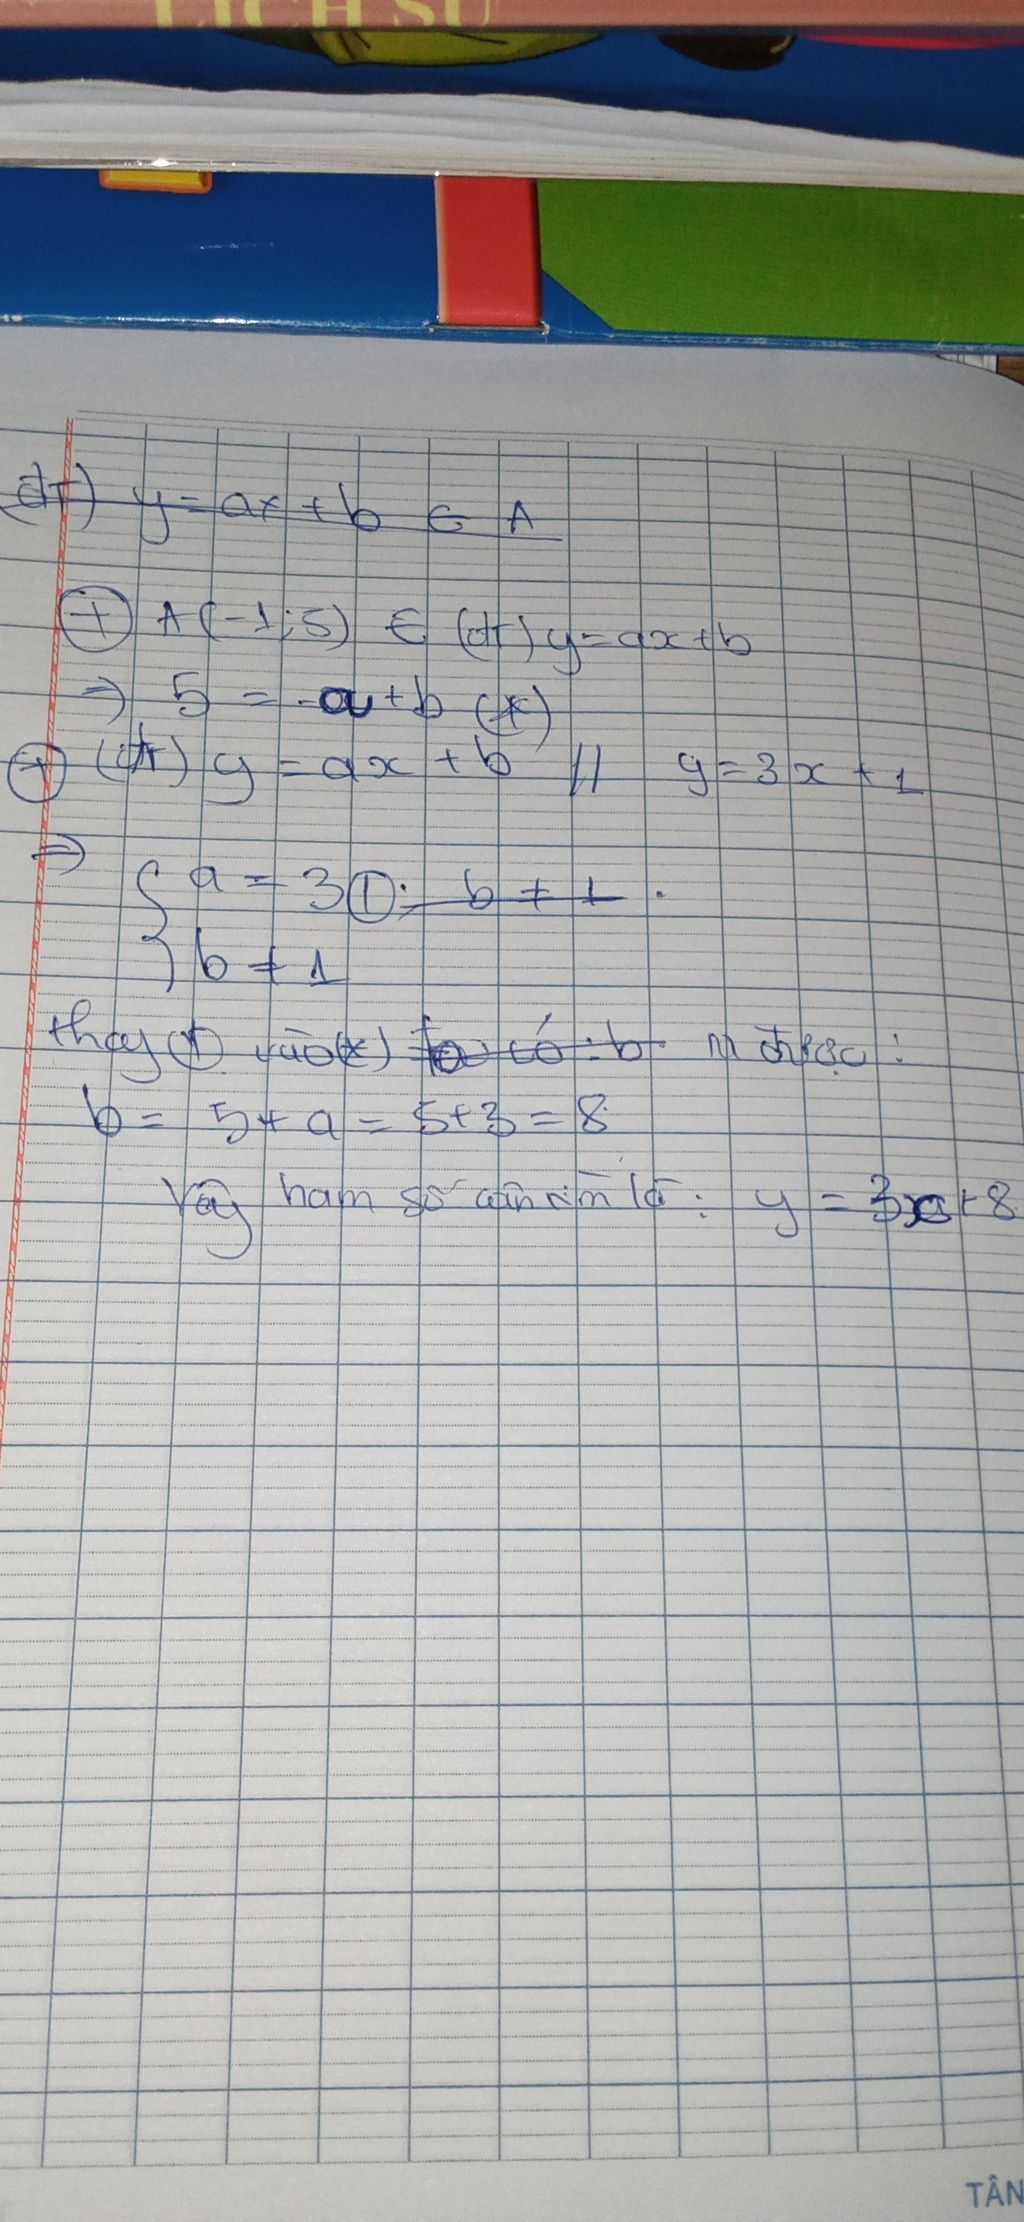 LỊCH SỬ
(dt) y = ax + b ∈ A
+ A(-1; 5) ∈ (dt) y = ax + b
⇒ 5 = -a + b (*)
+ (dt) y = ax + b // y = 3x + 1
⇒ { a = 3 ①; b ≠ 1.
b ≠ 1
thay ① vào (*) ta có: b được:
b = 5 + a = 5 + 3 = 8
Vậy ham số cần tìm là: y = 3x + 8
TÂN